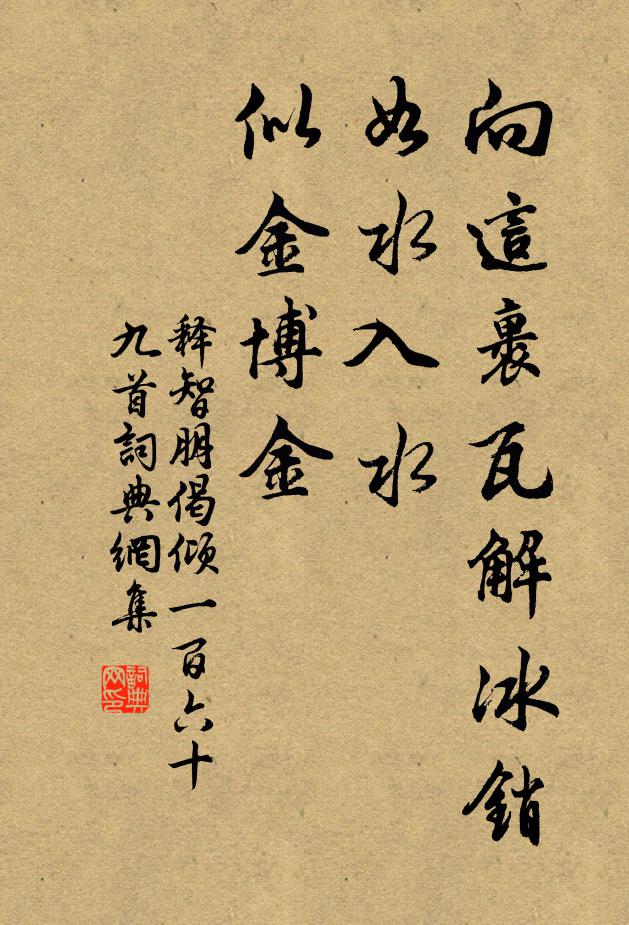 向這裹瓦解冰銷
如水入水
似金博金
释智朋偈倾一百六十
九首詞典網集
詞典
网印